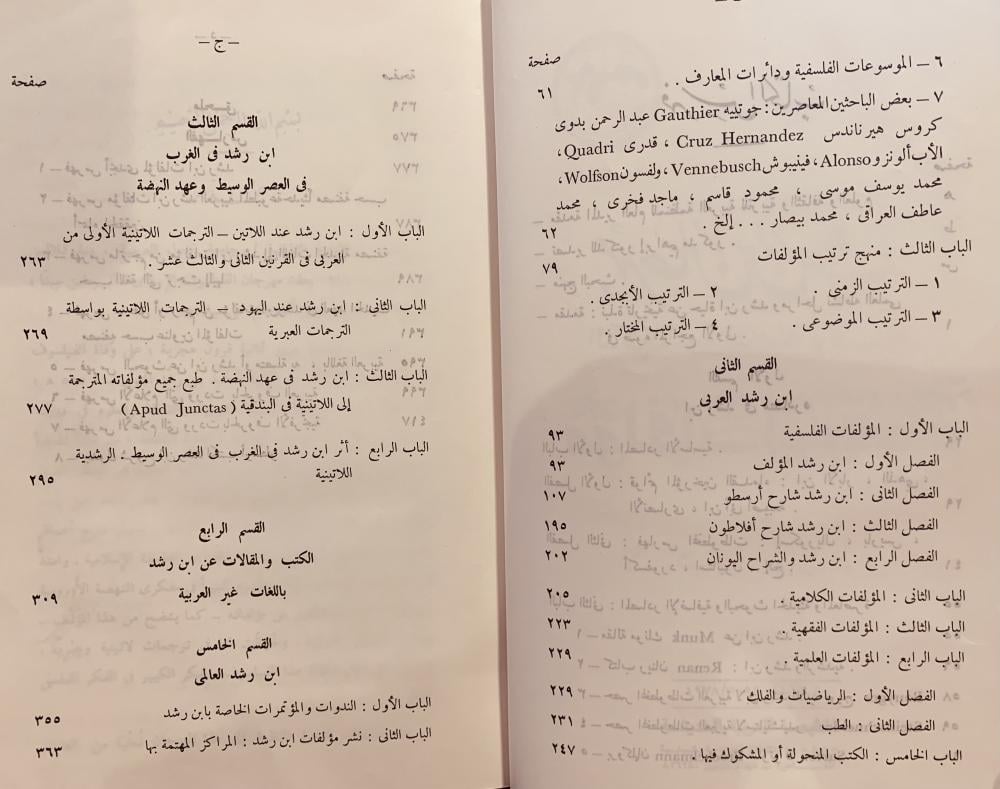 صفحة
٦ – الموسوعات الفلسفية ودائرات المعارف . ٦١
٧ – بعض الباحثين المعاصرين : جوتييه Gauthier عبد الرحمن بدوى
كروس هيرناندس Cruz Hernandez ، قدرى Quadri ،
الأب ألونزو Alonso، فينيبوش Vennebusch، ولفسون Wolfson،
محمد يوسف موسى ، محمود قاسم ، ماجد فخرى ، محمد
عاطف العراقى ، محمد بيصار . . . إلخ . ٦٢
الباب الثالث : منهج ترتيب المؤلفات ٧٩
١ – الترتيب الزمنى . ٢ – الترتيب الأبجدى .
٣ – الترتيب الموضوعى . ٤ – الترتيب المختار .
القسم الثانى
ابن رشد العربى
الباب الأول : المؤلفات الفلسفية ٩٣
الفصل الأول : ابن رشد المؤلف ٩٣
الفصل الثانى : ابن رشد شارح أرسطو ١٠٧
الفصل الثالث : ابن رشد شارح أفلاطون ١٩٥
الفصل الرابع : ابن رشد والشراح اليونان ٢٠٢
الباب الثانى : المؤلفات الكلامية . ٢٠٥
الباب الثالث : المؤلفات الفقهية . ٢٢٣
الباب الرابع : المؤلفات العلمية . ٢٢٩
الفصل الأول : الرياضيات والفلك ٢٢٩
الفصل الثانى : الطب ٢٣١
الباب الخامس : الكتب المنحولة أو المشكوك فيها . ٢٤٧
– ج –
صفحة
القسم الثالث
ابن رشد فى الغرب
فى العصر الوسيط وعهد النهضة
الباب الأول : ابن رشد عند اللاتين – الترجمات اللاتينية الأولى من
العربى فى القرنين الثانى والثالث عشر . ٢٦٣
الباب الثانى : ابن رشد عند اليهود – الترجمات اللاتينية بواسطة
الترجمات العبرية ٢٦٩
الباب الثالث : ابن رشد فى عهد النهضة . طبع جميع مؤلفاته المترجمة
إلى اللاتينية فى البندقية ( Apud Junctas ) ٢٧٧
الباب الرابع : أثر ابن رشد فى الغرب فى العصر الوسيط . الرشدية
اللاتينية ٢٩٥
القسم الرابع
الكتب والمقالات عن ابن رشد
باللغات غير العربية ٣٠٩
القسم الخامس
ابن رشد العالمى
الباب الأول : الندوات والمؤتمرات الخاصة بابن رشد ٣٥٥
الباب الثانى : نشر مؤلفات ابن رشد : المراكز المهتمة بها ٣٦٣